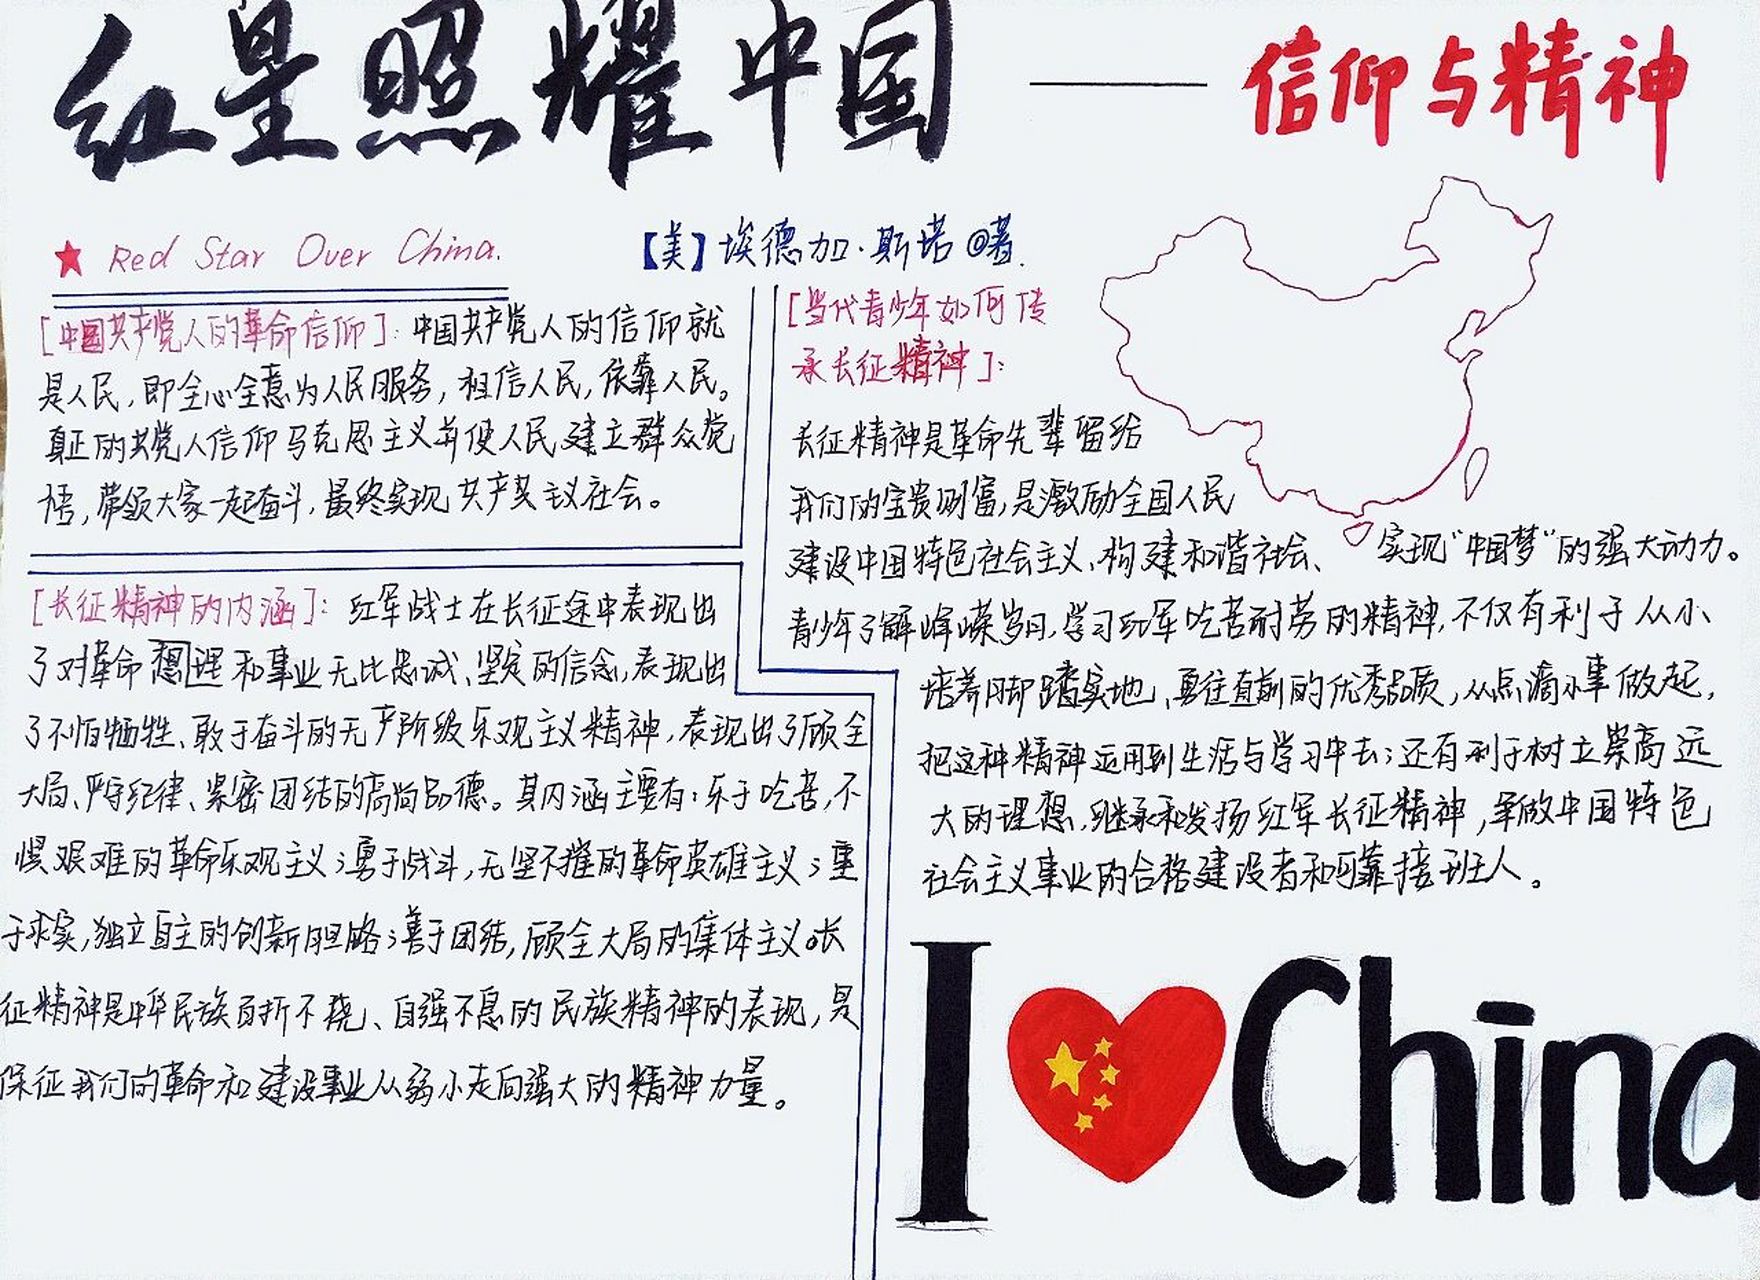 红星照耀中国 —— 信仰与精神
★ Red Star Over China.
【美】埃德加·斯诺◎著.
[中国共产党人的革命信仰]：中国共产党人的信仰就
是人民，即全心全意为人民服务，相信人民，依靠人民。
真正的共党人信仰马克思主义并使人民建立群众党
悟，带领大家一起奋斗，最终实现共产其主议社会。
[长征精神的内涵]：红军战士在长征途中表现出
了对革命想理和事业无比忠诚、坚定的信念，表现出
了不怕牺牲、敢于奋斗的无产阶级乐观主义精神，表现出了顾全
大局、严守纪律、紧密团结的高尚品德。其内涵主要有：乐于吃苦，不
惧艰难的革命乐观主义；勇于战斗，无坚不摧的革命英雄主义；重
于求实，独立自主的创新胆略；善于团结，顾全大局的集体主义。长
征精神是中华民族百折不挠、自强不息的民族精神的表现，是
保证我们的革命和建设事业从弱小走向强大的精神力量。
[当代青少年如何传
承长征精神]：
长征精神是革命先辈留给
我们的宝贵财富，是激励全国人民
建设中国特色社会主义、构建和谐社会、实现“中国梦”的强大动力。
青少年了解峥嵘岁月，学习红军吃苦耐劳的精神，不仅有利于从小
培养脚踏实地、勇往直前的优秀品质，从点滴小事做起，
把这种精神运用到生活与学习中去；还有利于树立崇高远
大的理想，继承和发扬红军长征精神，争做中国特色
社会主义事业的合格建设者和可靠接班人。
I China